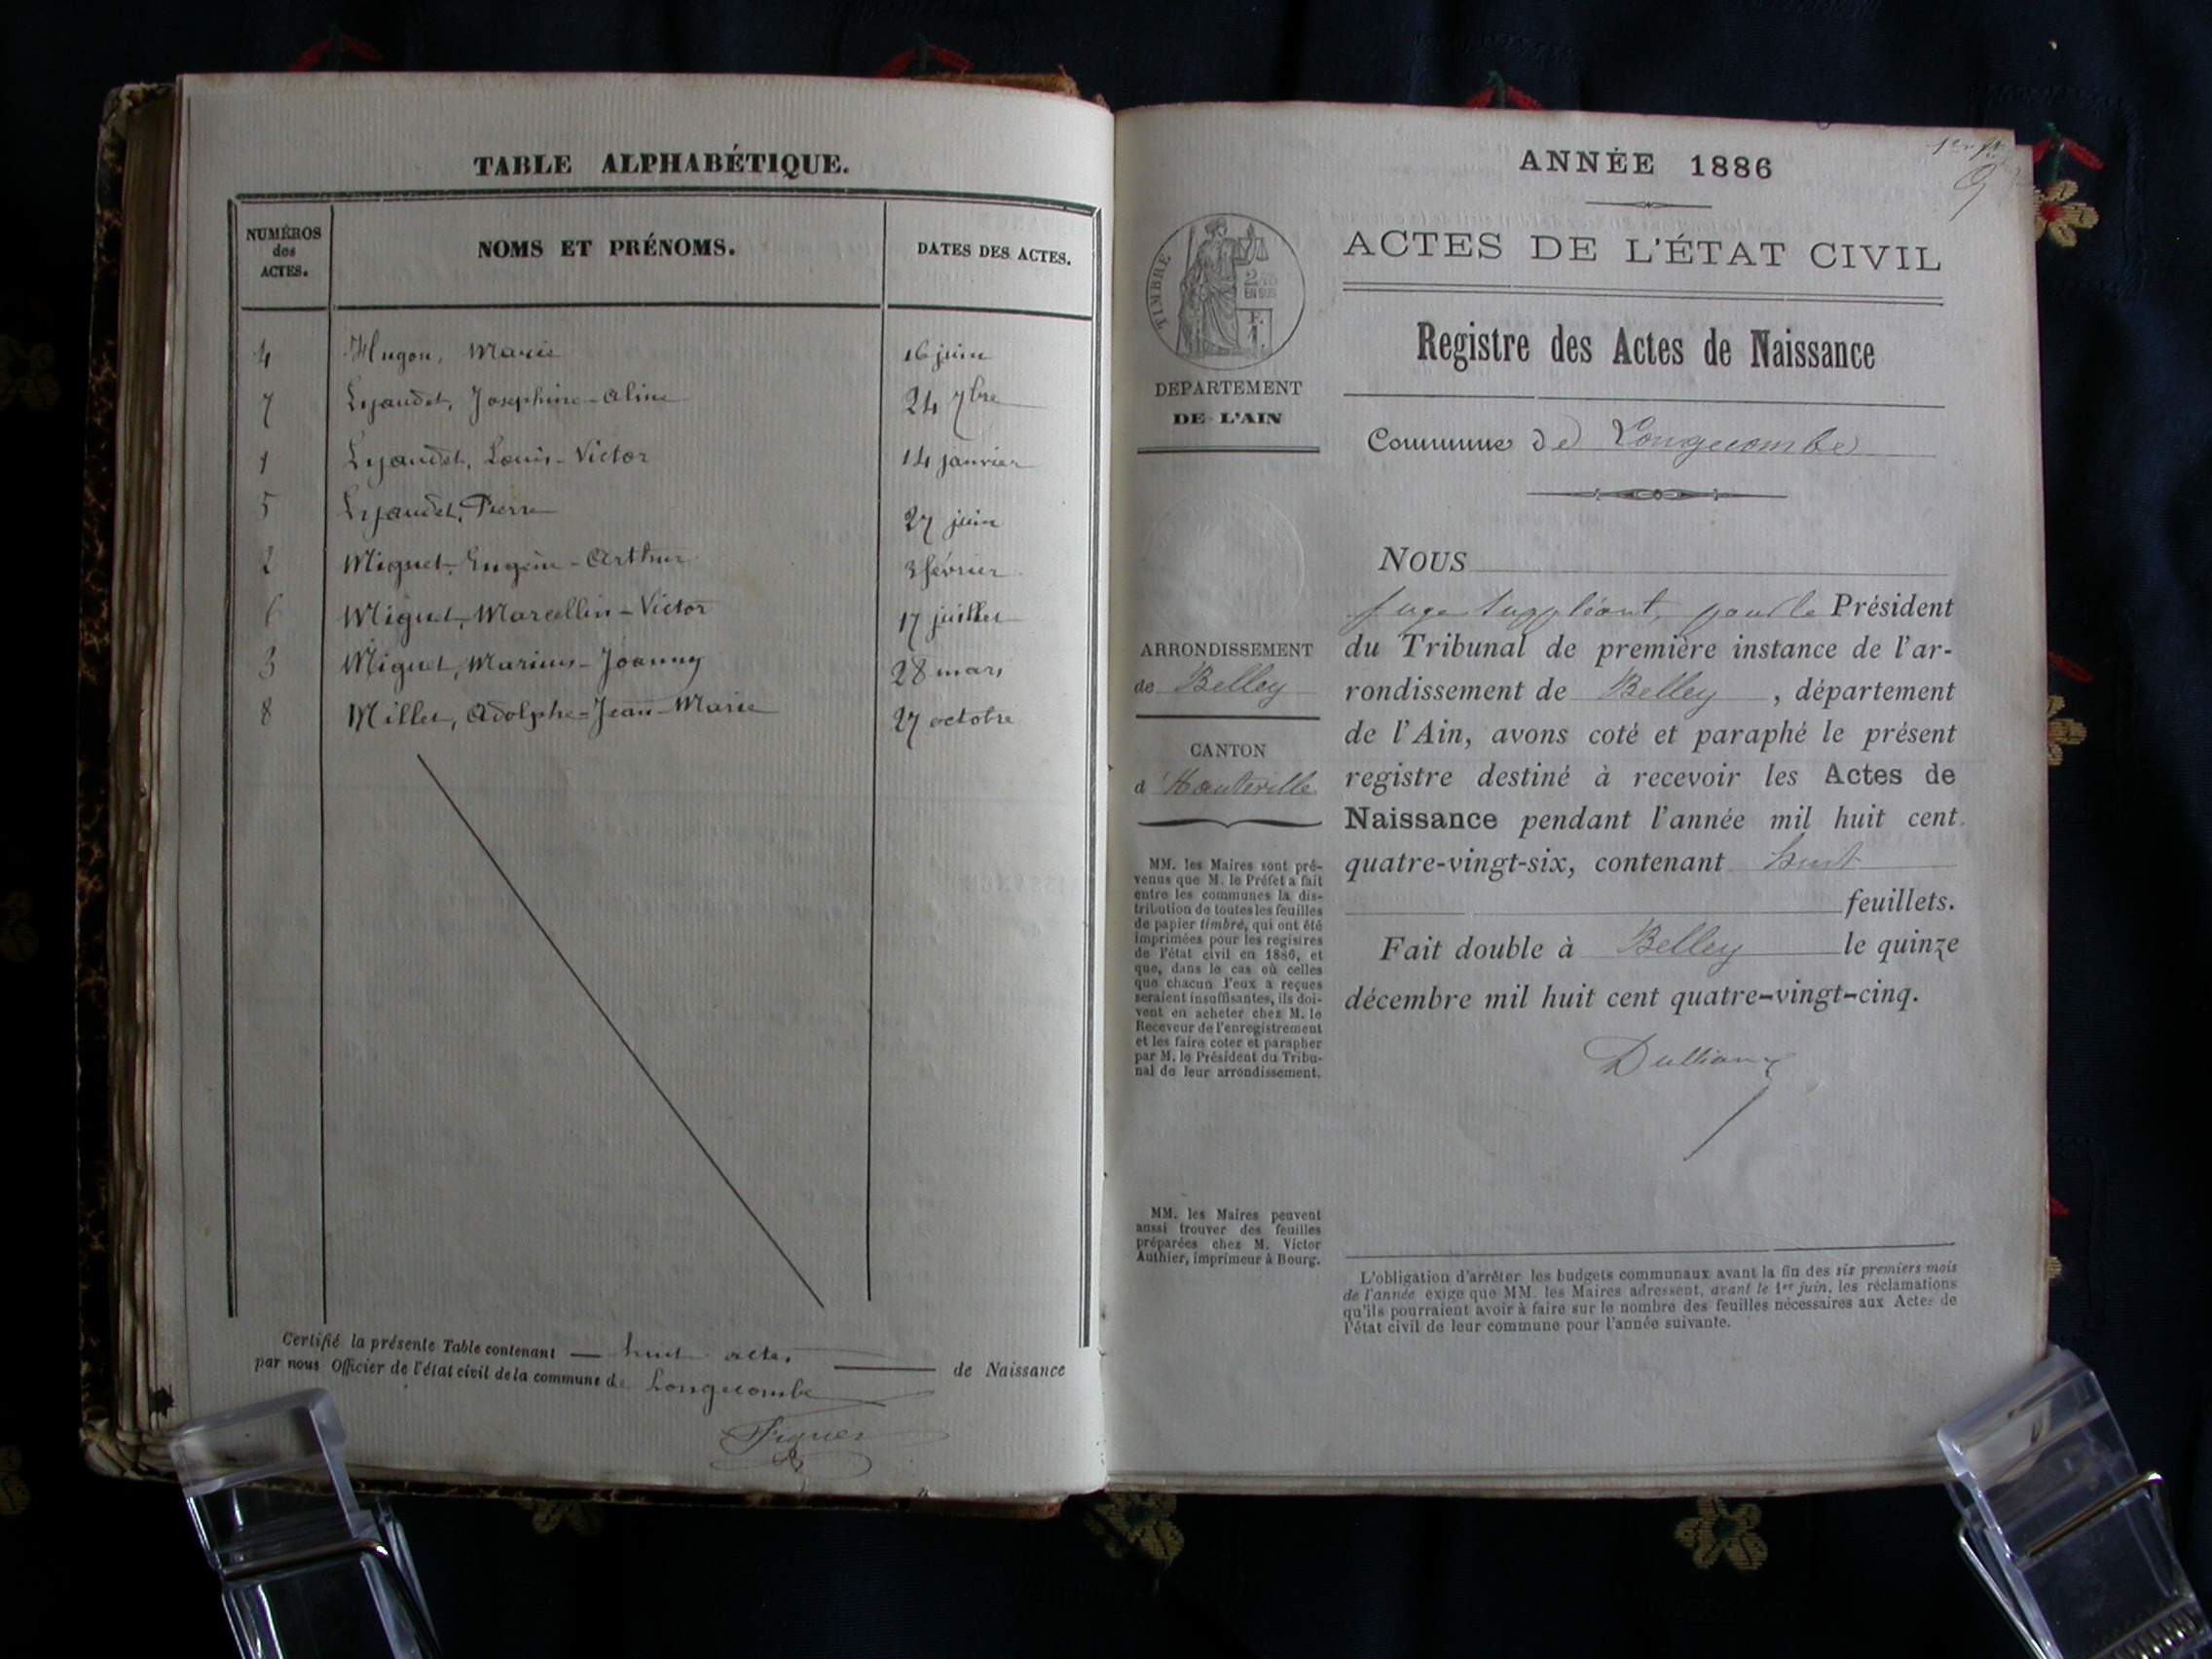 TABLE ALPHABÉTIQUE.
NUMÉROS des ACTES. NOMS ET PRÉNOMS. DATES DES ACTES.
4 Hugon, Marie 16 juin
7 Lyaudet, Josephine-Aline 24 7bre
1 Lyaudet, Louis-Victor 14 janvier
5 Lyaudet, Pierre 27 juin
2 Miguet, Eugène-Arthur 3 février
6 Miguet, Marcellin-Victor 17 juillet
3 Miguet, Marius-Joanny 28 mars
8 Millet, Adolphe-Jean-Marie 27 octobre
Certifié la présente Table contenant huit actes de Naissance
par nous Officier de l'état civil de la commune de Longecombe
ANNÉE 1886
ACTES DE L'ÉTAT CIVIL
Registre des Actes de Naissance
Commune de Longecombe
TIMBRE
2/10
EN SUS
DEPARTEMENT
DE L'AIN
ARRONDISSEMENT
de Belley
CANTON
d'Hauteville
MM. les Maires sont pré-
venus que M. le Préfet a fait
entre les communes la dis-
tribution de toutes les feuilles
de papier timbré, qui ont été
imprimées pour les registres
de l'état civil en 1886, et
que, dans le cas où celles
que chacun d'eux a reçues
seraient insuffisantes, ils doi-
vent en acheter chez M. le
Receveur de l'enregistrement
et les faire coter et parapher
par M. le Président du Tribu-
nal de leur arrondissement.
MM. les Maires peuvent
aussi trouver des feuilles
préparées chez M. Victor
Authier, imprimeur à Bourg.
NOUS
juge suppléant, pour le Président
du Tribunal de première instance de l'ar-
rondissement de Belley, département
de l'Ain, avons coté et paraphé le présent
registre destiné à recevoir les Actes de
Naissance pendant l'année mil huit cent
quatre-vingt-six, contenant huit
feuillets.
Fait double à Belley le quinze
décembre mil huit cent quatre-vingt-cinq.
L'obligation d'arrêter les budgets communaux avant la fin des six premiers mois
de l'année exige que MM. les Maires adressent, avant le 1er juin, les réclamations
qu'ils pourraient avoir à faire sur le nombre des feuilles nécessaires aux Actes de
l'état civil de leur commune pour l'année suivante.